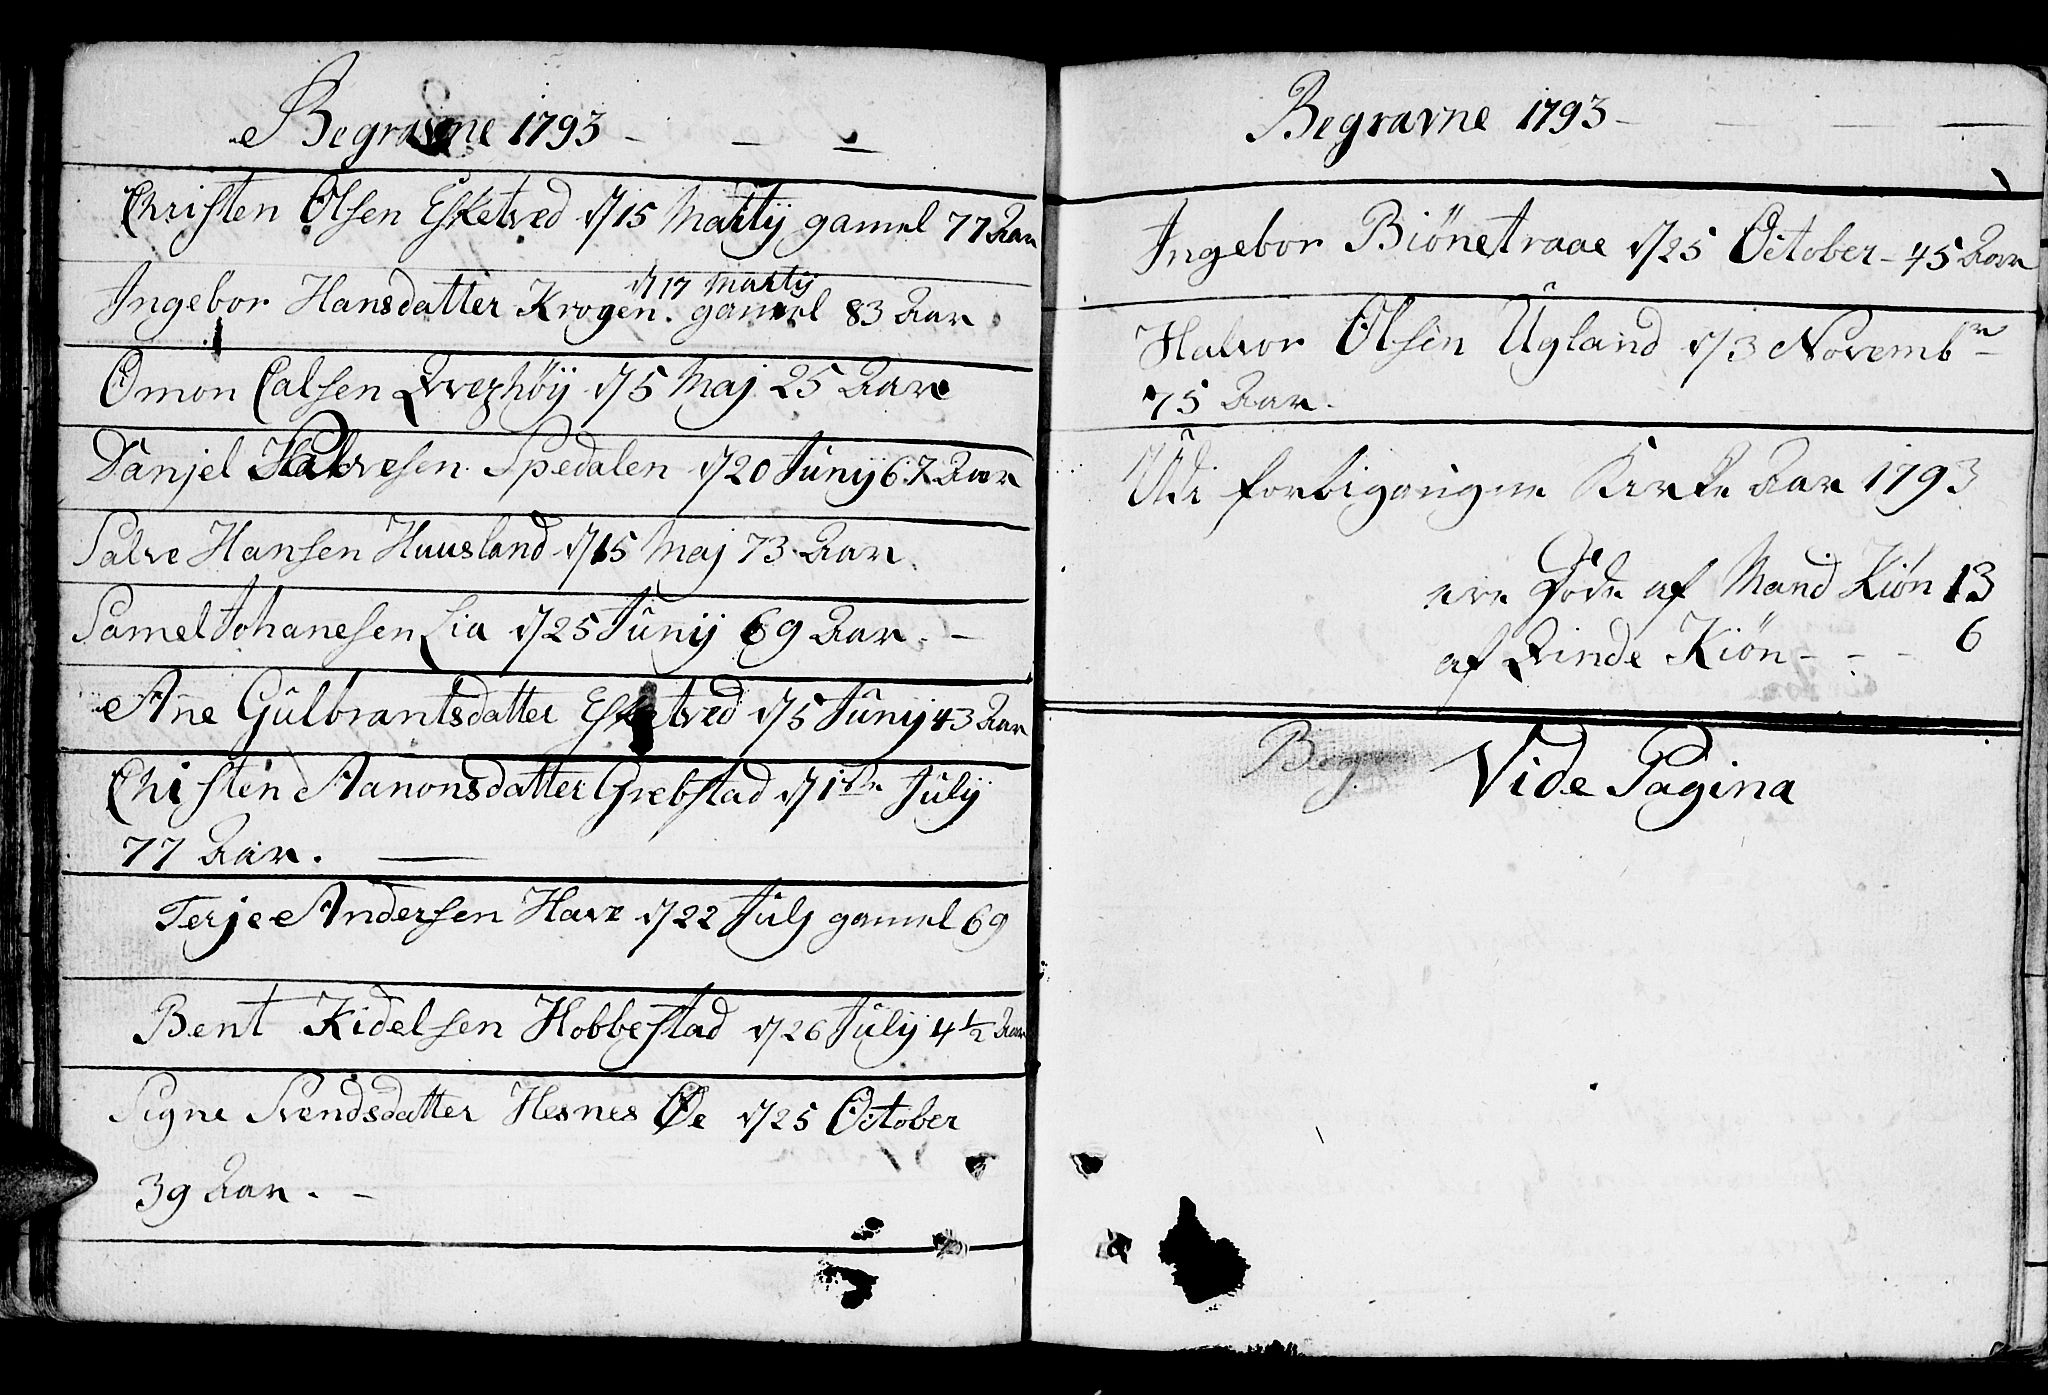 Begravne 1793 - - -
Christen Olsen Esketved d 15 Martij gamel 77 Aar
d 17 Martij
Ingebor Hansdatter Krogen. gamel 83 Aar
Omon Calsen Qvephöy d 5 Maj 25 Aar
Danjel Halvesen Spedalen d 20 Junij 67 Aar
Salve Hansen Huusland d 15 Maj 73 Aar.
Samel Johanesen Lia d 25 Junij 69 Aar. -
Ane Gulbrantsdatter Esketved d 5 Junij 43 Aar
Christen Aanonsdatter Grebstad d 1ste Julij
77 Aar. —
Terje Andersen Have d 22 Julj gamel 69
Bent Kidelsen Hobbestad d 26 Julij 4 1/2 Aar
Signe Svendsdatter Hesnes Øe d 25 October
39 Aar. -
Begravne 1793 - - - -
Ingebor Biönetraae d 25 October - 45 Aar
Halvor Olsen Ugland d 3 Novembr
75 Aar.
Udi forbigangne Kirke Aar 1793
ere Døde af Mand Kiön 13
af Qvinde Kiön - - - 6
Beg. Vide Pagina